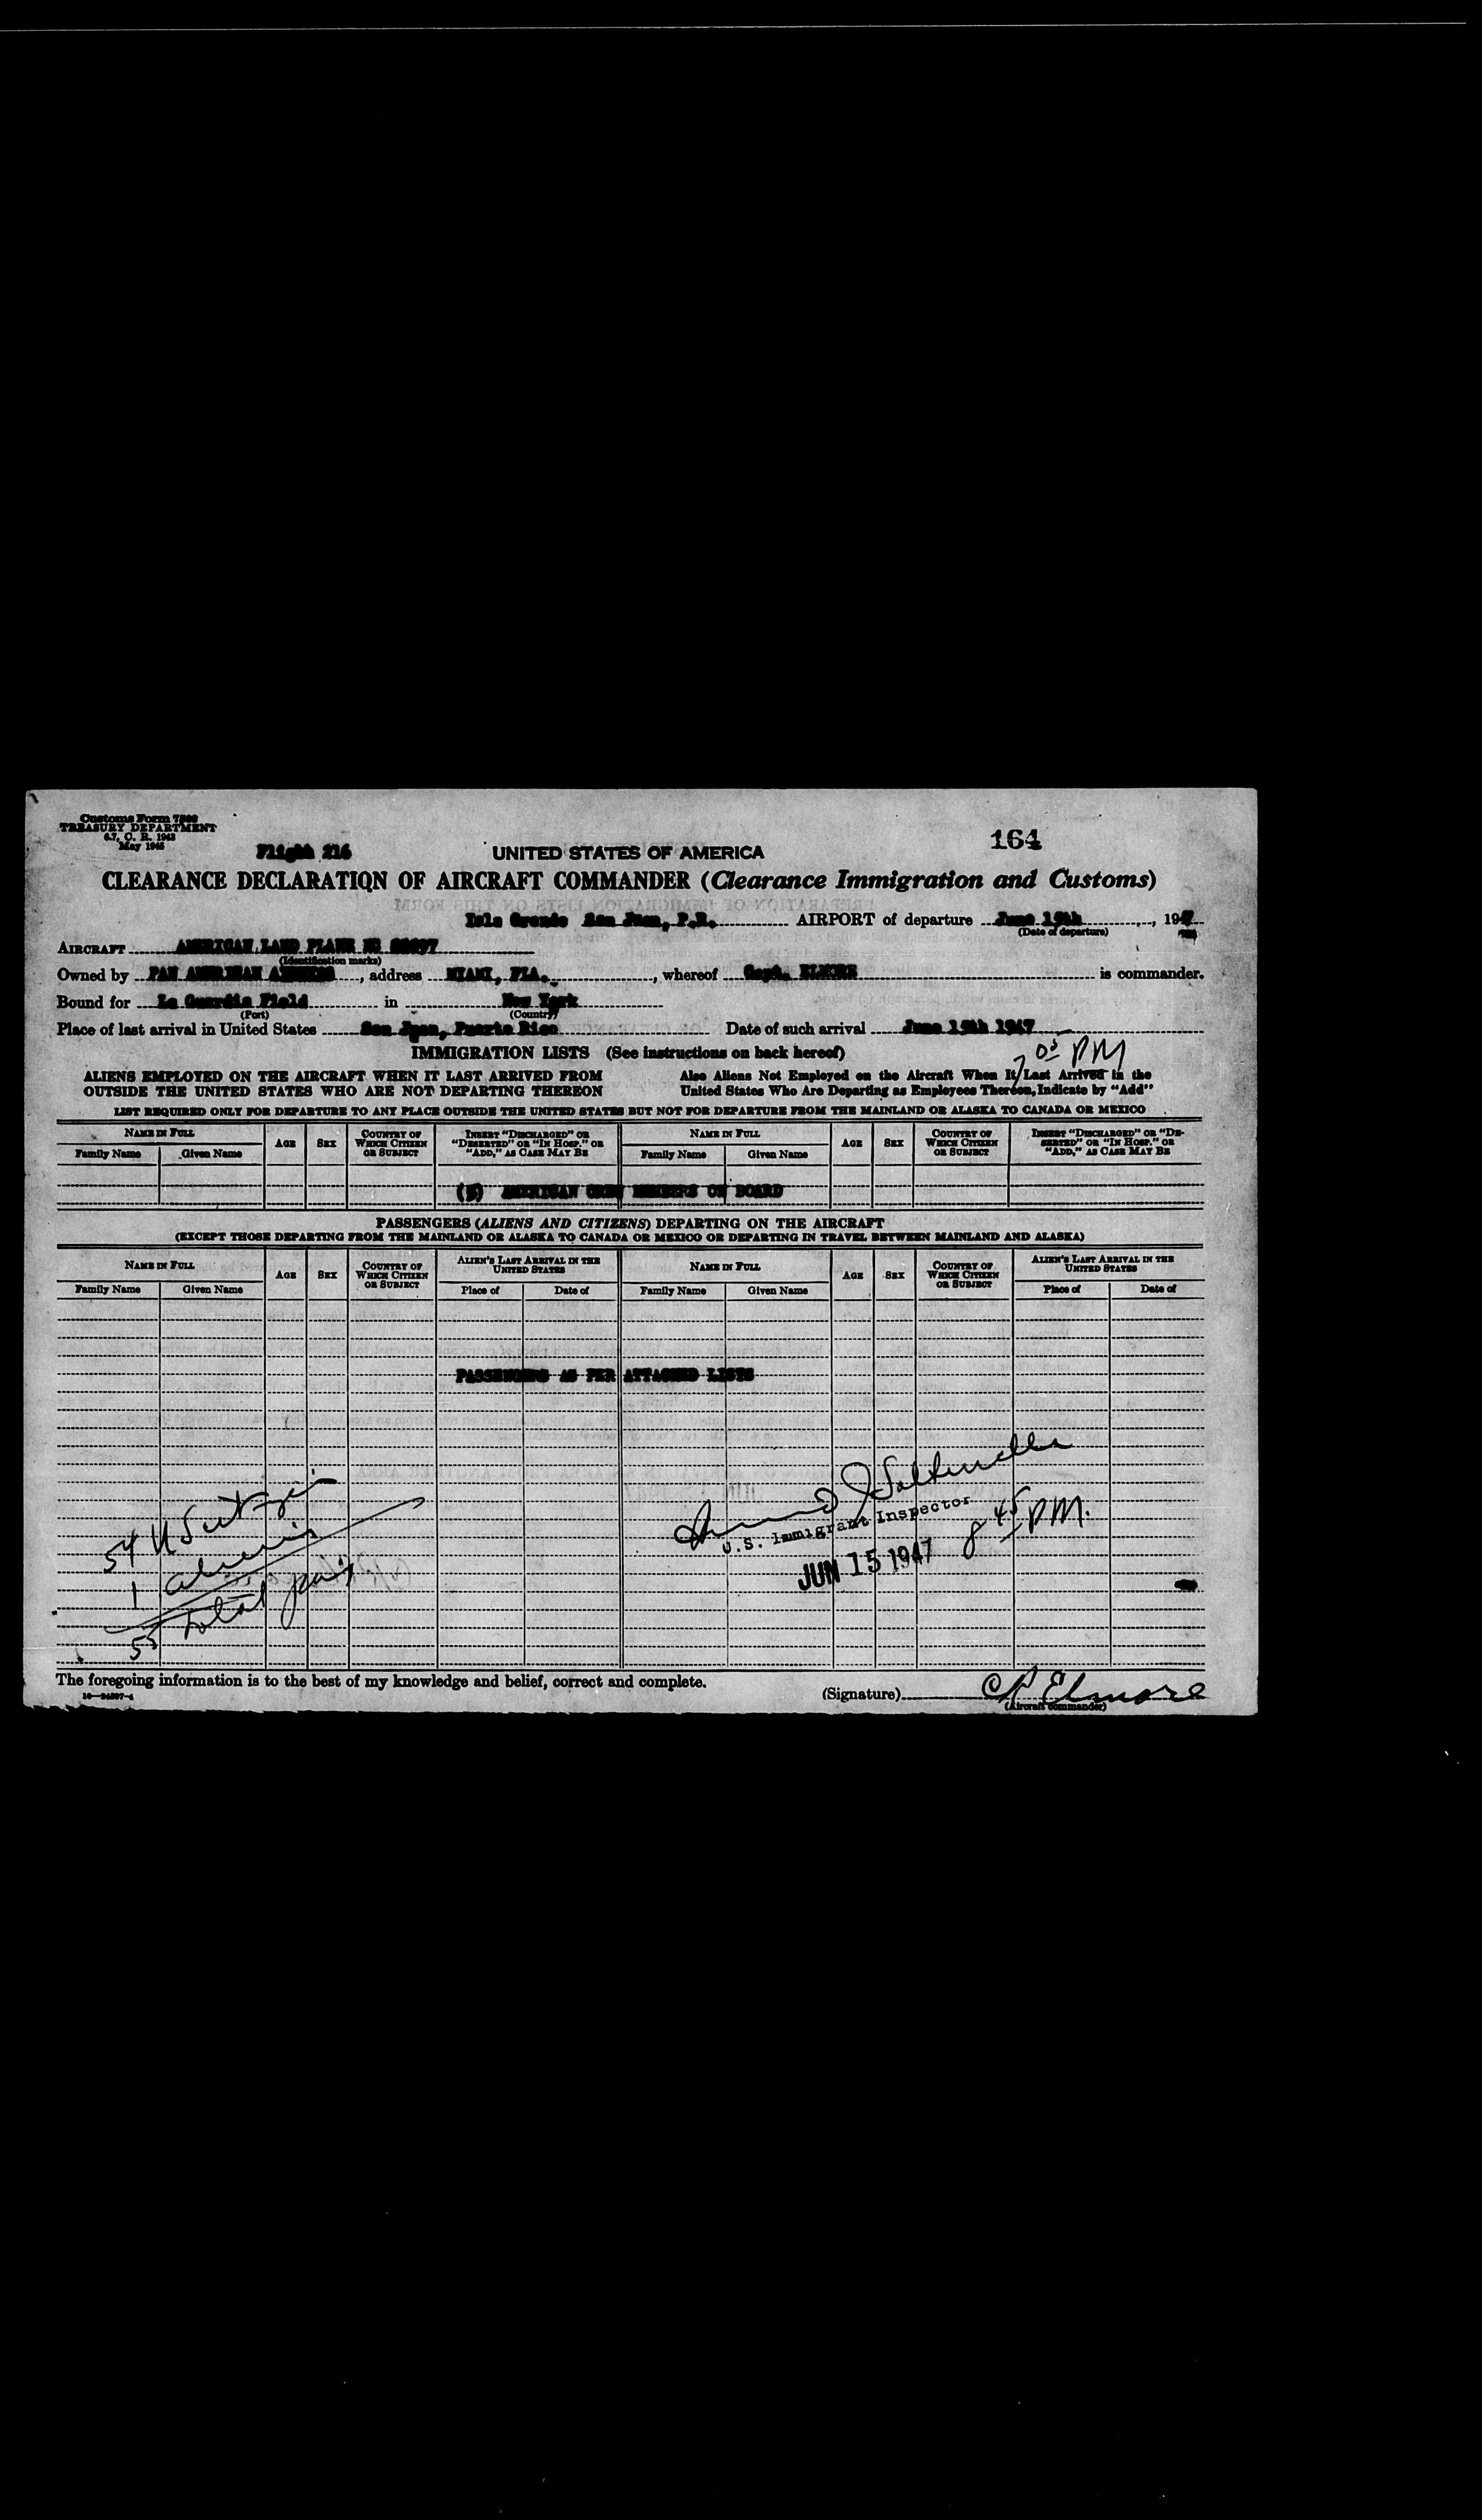 Customs Form
TREASURY DEPARTMENT
C. R. 1943
May 1945
Flight 216
UNITED STATES OF AMERICA
164
CLEARANCE DECLARATION OF AIRCRAFT COMMANDER (Clearance Immigration and Customs)
Isla Grande San Juan, P.R. AIRPORT of departure June 15th, 1947
(Date of departure)
AIRCRAFT AMERICAN LAND PLANE NC
(Identification marks)
Owned by PAN AMERICAN AIRWAYS, address MIAMI, FLA., whereof Capt. ELMORE is commander.
Bound for La Guardia Field in New York
(Port) (Country)
Place of last arrival in United States San Juan, Puerto Rico Date of such arrival June 15th 1947
7 05 PM
IMMIGRATION LISTS (See instructions on back hereof)
ALIENS EMPLOYED ON THE AIRCRAFT WHEN IT LAST ARRIVED FROM OUTSIDE THE UNITED STATES WHO ARE NOT DEPARTING THEREON
Also Aliens Not Employed on the Aircraft When It Last Arrived in the United States Who Are Departing as Employees Thereon, Indicate by "Add"
LIST REQUIRED ONLY FOR DEPARTURE TO ANY PLACE OUTSIDE THE UNITED STATES BUT NOT FOR DEPARTURE FROM THE MAINLAND OR ALASKA TO CANADA OR MEXICO
NAME IN FULL AGE SEX COUNTRY OF WHICH CITIZEN OR SUBJECT INSERT "DISCHARGED" OR "DESERTED" OR "IN HOSP." OR "ADD," AS CASE MAY BE NAME IN FULL AGE SEX COUNTRY OF WHICH CITIZEN OR SUBJECT INSERT "DISCHARGED" OR "DESERTED" OR "IN HOSP." OR "ADD," AS CASE MAY BE
Family Name Given Name Family Name Given Name
AMERICAN CREW MEMBERS ON BOARD
PASSENGERS (ALIENS AND CITIZENS) DEPARTING ON THE AIRCRAFT
(EXCEPT THOSE DEPARTING FROM THE MAINLAND OR ALASKA TO CANADA OR MEXICO OR DEPARTING IN TRAVEL BETWEEN MAINLAND AND ALASKA)
NAME IN FULL AGE SEX COUNTRY OF WHICH CITIZEN OR SUBJECT ALIEN'S LAST ARRIVAL IN THE UNITED STATES NAME IN FULL AGE SEX COUNTRY OF WHICH CITIZEN OR SUBJECT ALIEN'S LAST ARRIVAL IN THE UNITED STATES
Family Name Given Name Place of Date of Family Name Given Name Place of Date of
PASSENGERS AS PER ATTACHED LISTS
54 US
1
55 total
U.S. Immigrant Inspector
JUN 15 1947 8 45 PM.
The foregoing information is to the best of my knowledge and belief, correct and complete.
(Signature) Elmore
(Aircraft commander)